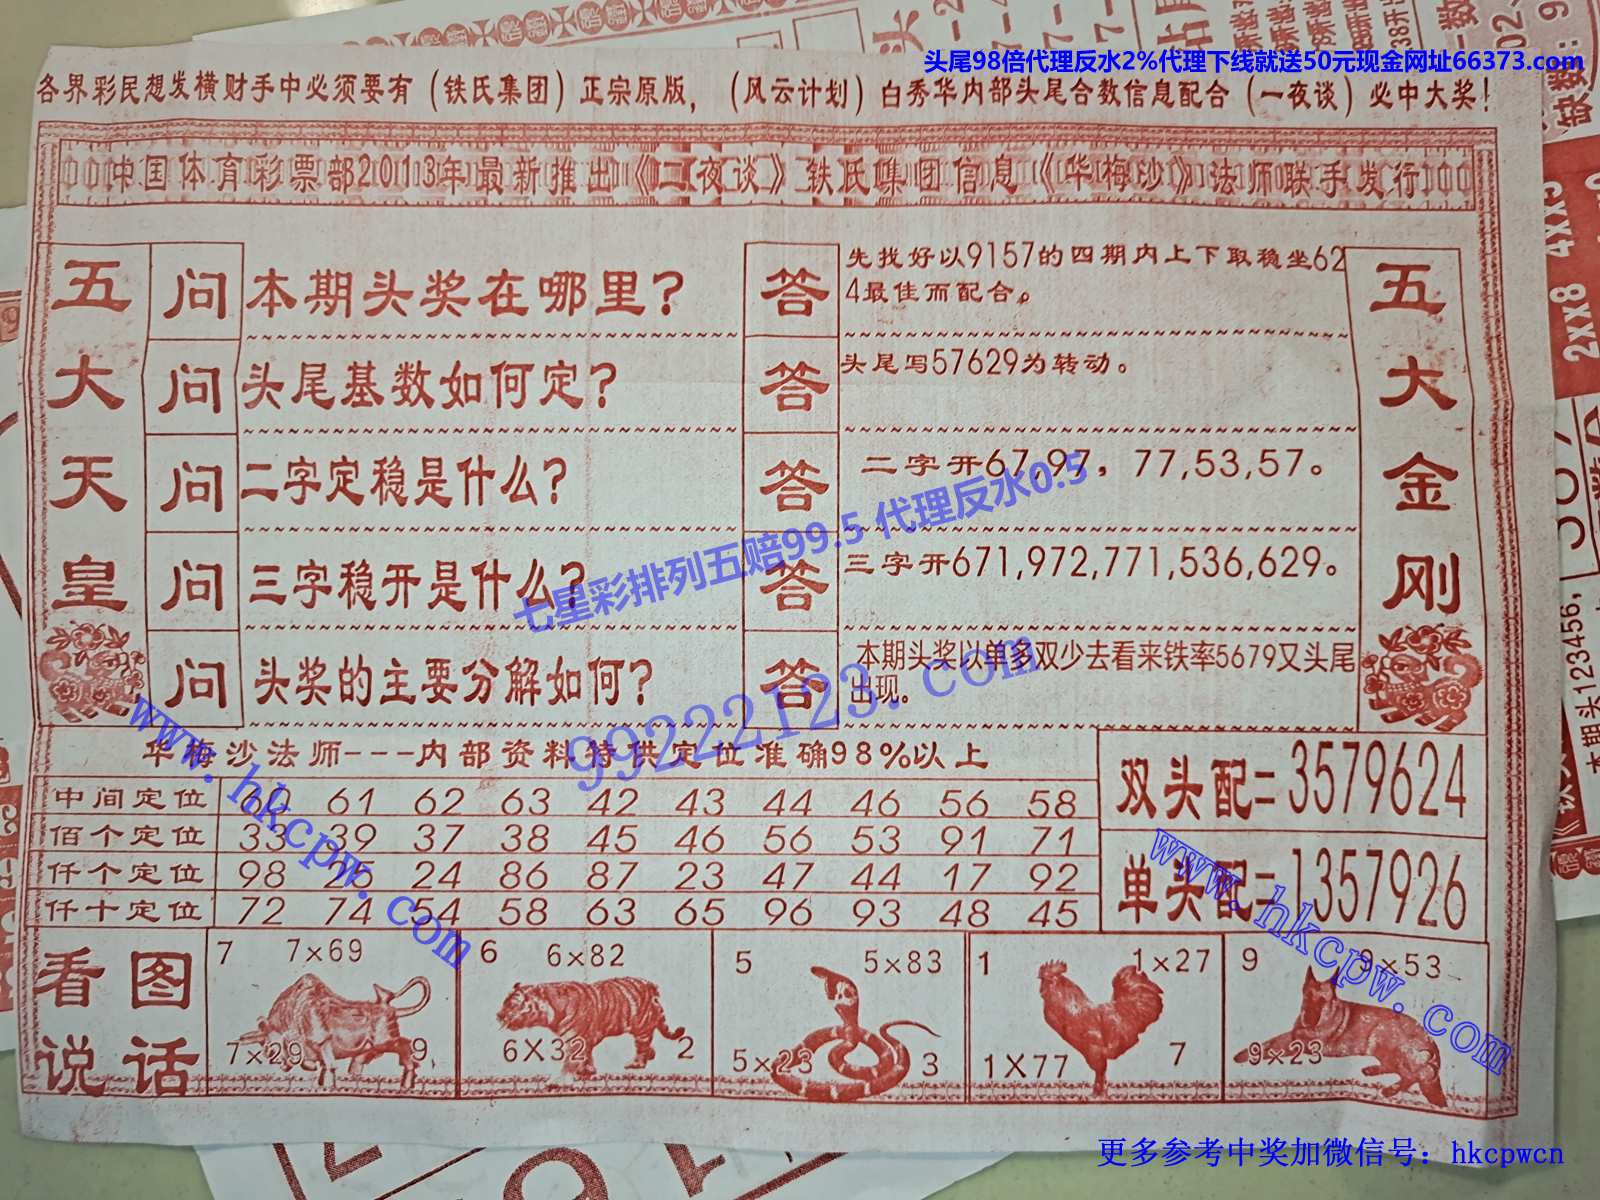 头尾98倍代理反水2%代理下线就送50元现金网址66373.com
各界彩民想发横财手中必须要有（铁氏集团）正宗原版，（风云计划）白秀华内部头尾合数信息配合（一夜谈）必中大奖！
中国体育彩票部2013年最新推出《二夜谈》铁氏集团信息《华梅沙》法师联手发行
五大天皇
问 本期头奖在哪里？
答 先找好以9157的四期内上下取稳坐62
4最佳而配合。
问 头尾基数如何定？
答 头尾写57629为转动。
问 二字定稳是什么？
答 二字开67,97，77,53,57。
问 三字稳开是什么？
答 三字开671,972,771,536,629。
问 头奖的主要分解如何？
答 本期头奖以单多双少去看来铁率5679又头尾
出现。
五大金刚
七星彩排列五赔99.5 代理反水0.5
99222123.com
www.hkcpw.com
www.hkcpw.com
华梅沙法师---内部资料特供定位准确98%以上
中间定位 60 61 62 63 42 43 44 46 56 58
佰个定位 33 39 37 38 45 46 56 53 91 71
仟个定位 98 26 24 86 87 23 47 44 17 92
仟十定位 72 74 54 58 63 65 96 93 48 45
双头配=3579624
单头配=1357926
看图
说话
7 7×69
7×29 9
6 6×82
6X32 2
5 5×83
5×23 3
1 1×27
1X77 7
9 9×53
9×23
2XX8 4XX5
本期头123456,
更多参考中奖加微信号：hkcpwcn